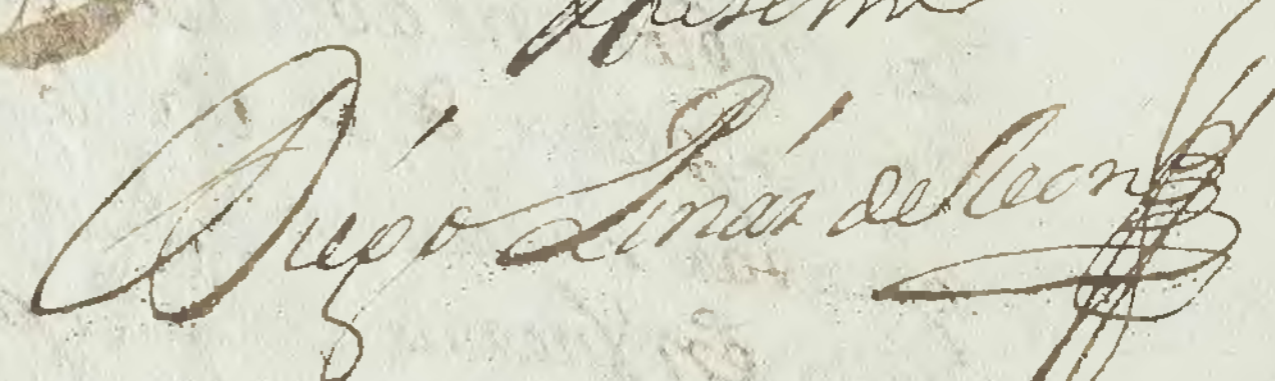 Diego Linás de Leon